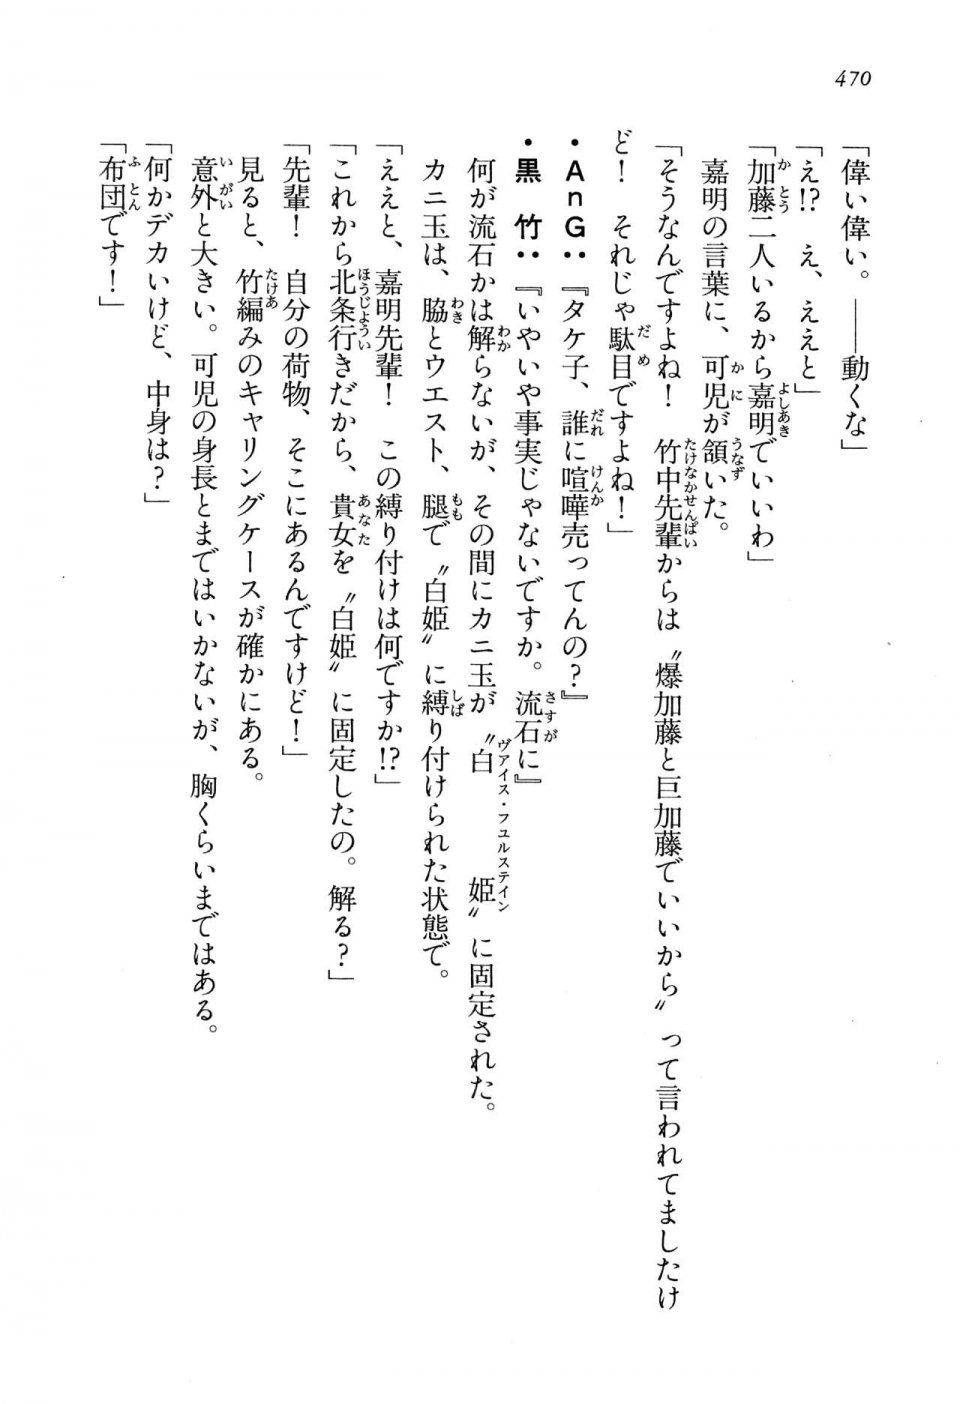 470
「偉い偉い。――動くな」
「え!? え、ええと」
「加藤二人いるから嘉明でいいわ」
嘉明の言葉に、可児が頷いた。
「そうなんですよね! 竹中先輩からは〝爆加藤と巨加藤でいいから〟って言われてましたけ
ど! それじゃ駄目ですよね!」
・AnG:『タケ子、誰に喧嘩売ってんの?』
・黒 竹:『いやいや事実じゃないですか。流石に』
何が流石かは解らないが、その間にカニ玉が〝白姫〟に固定された。
カニ玉は、脇とウエスト、腿で〝白姫〟に縛り付けられた状態で。
「ええと、嘉明先輩! この縛り付けは何ですか!?」
「これから北条行きだから、貴女を〝白姫〟に固定したの。解る?」
「先輩! 自分の荷物、そこにあるんですけど!」
見ると、竹編みのキャリングケースが確かにある。
意外と大きい。可児の身長とまではいかないが、胸くらいまではある。
「何かデカいけど、中身は?」
「布団です!」